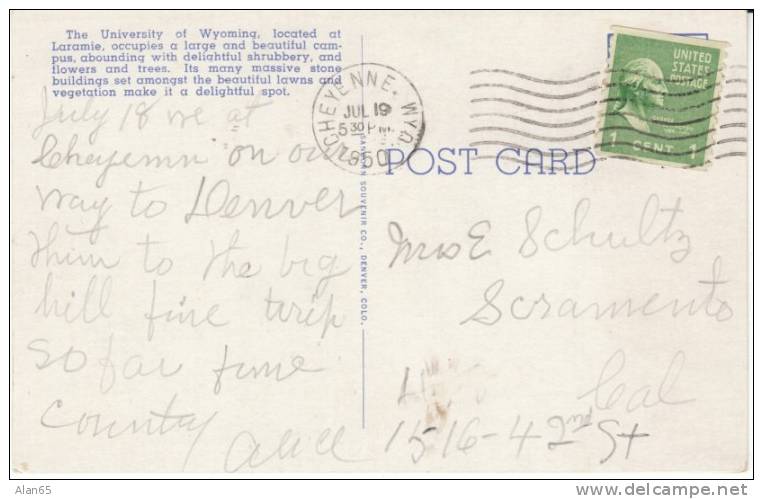 The University of Wyoming, located at
Laramie, occupies a large and beautiful cam-
pus, abounding with delightful shrubbery, and
flowers and trees. Its many massive stone
buildings set amongst the beautiful lawns and
vegetation make it a delightful spot.
July 18 we at
Cheyenn on our
way to Denver
then to the big
hill fine trip
so far fine
country
Alice
CHEYENNE, WYO.
JUL 19
5 30 PM
1950
UNITED
STATES
POSTAGE
1 CENT 1
POST CARD
SANBORN SOUVENIR CO., DENVER, COLO.
Mrs E Schultz
Scramento
Cal
1516-42 St
Alan65
http://www.delcampe.net